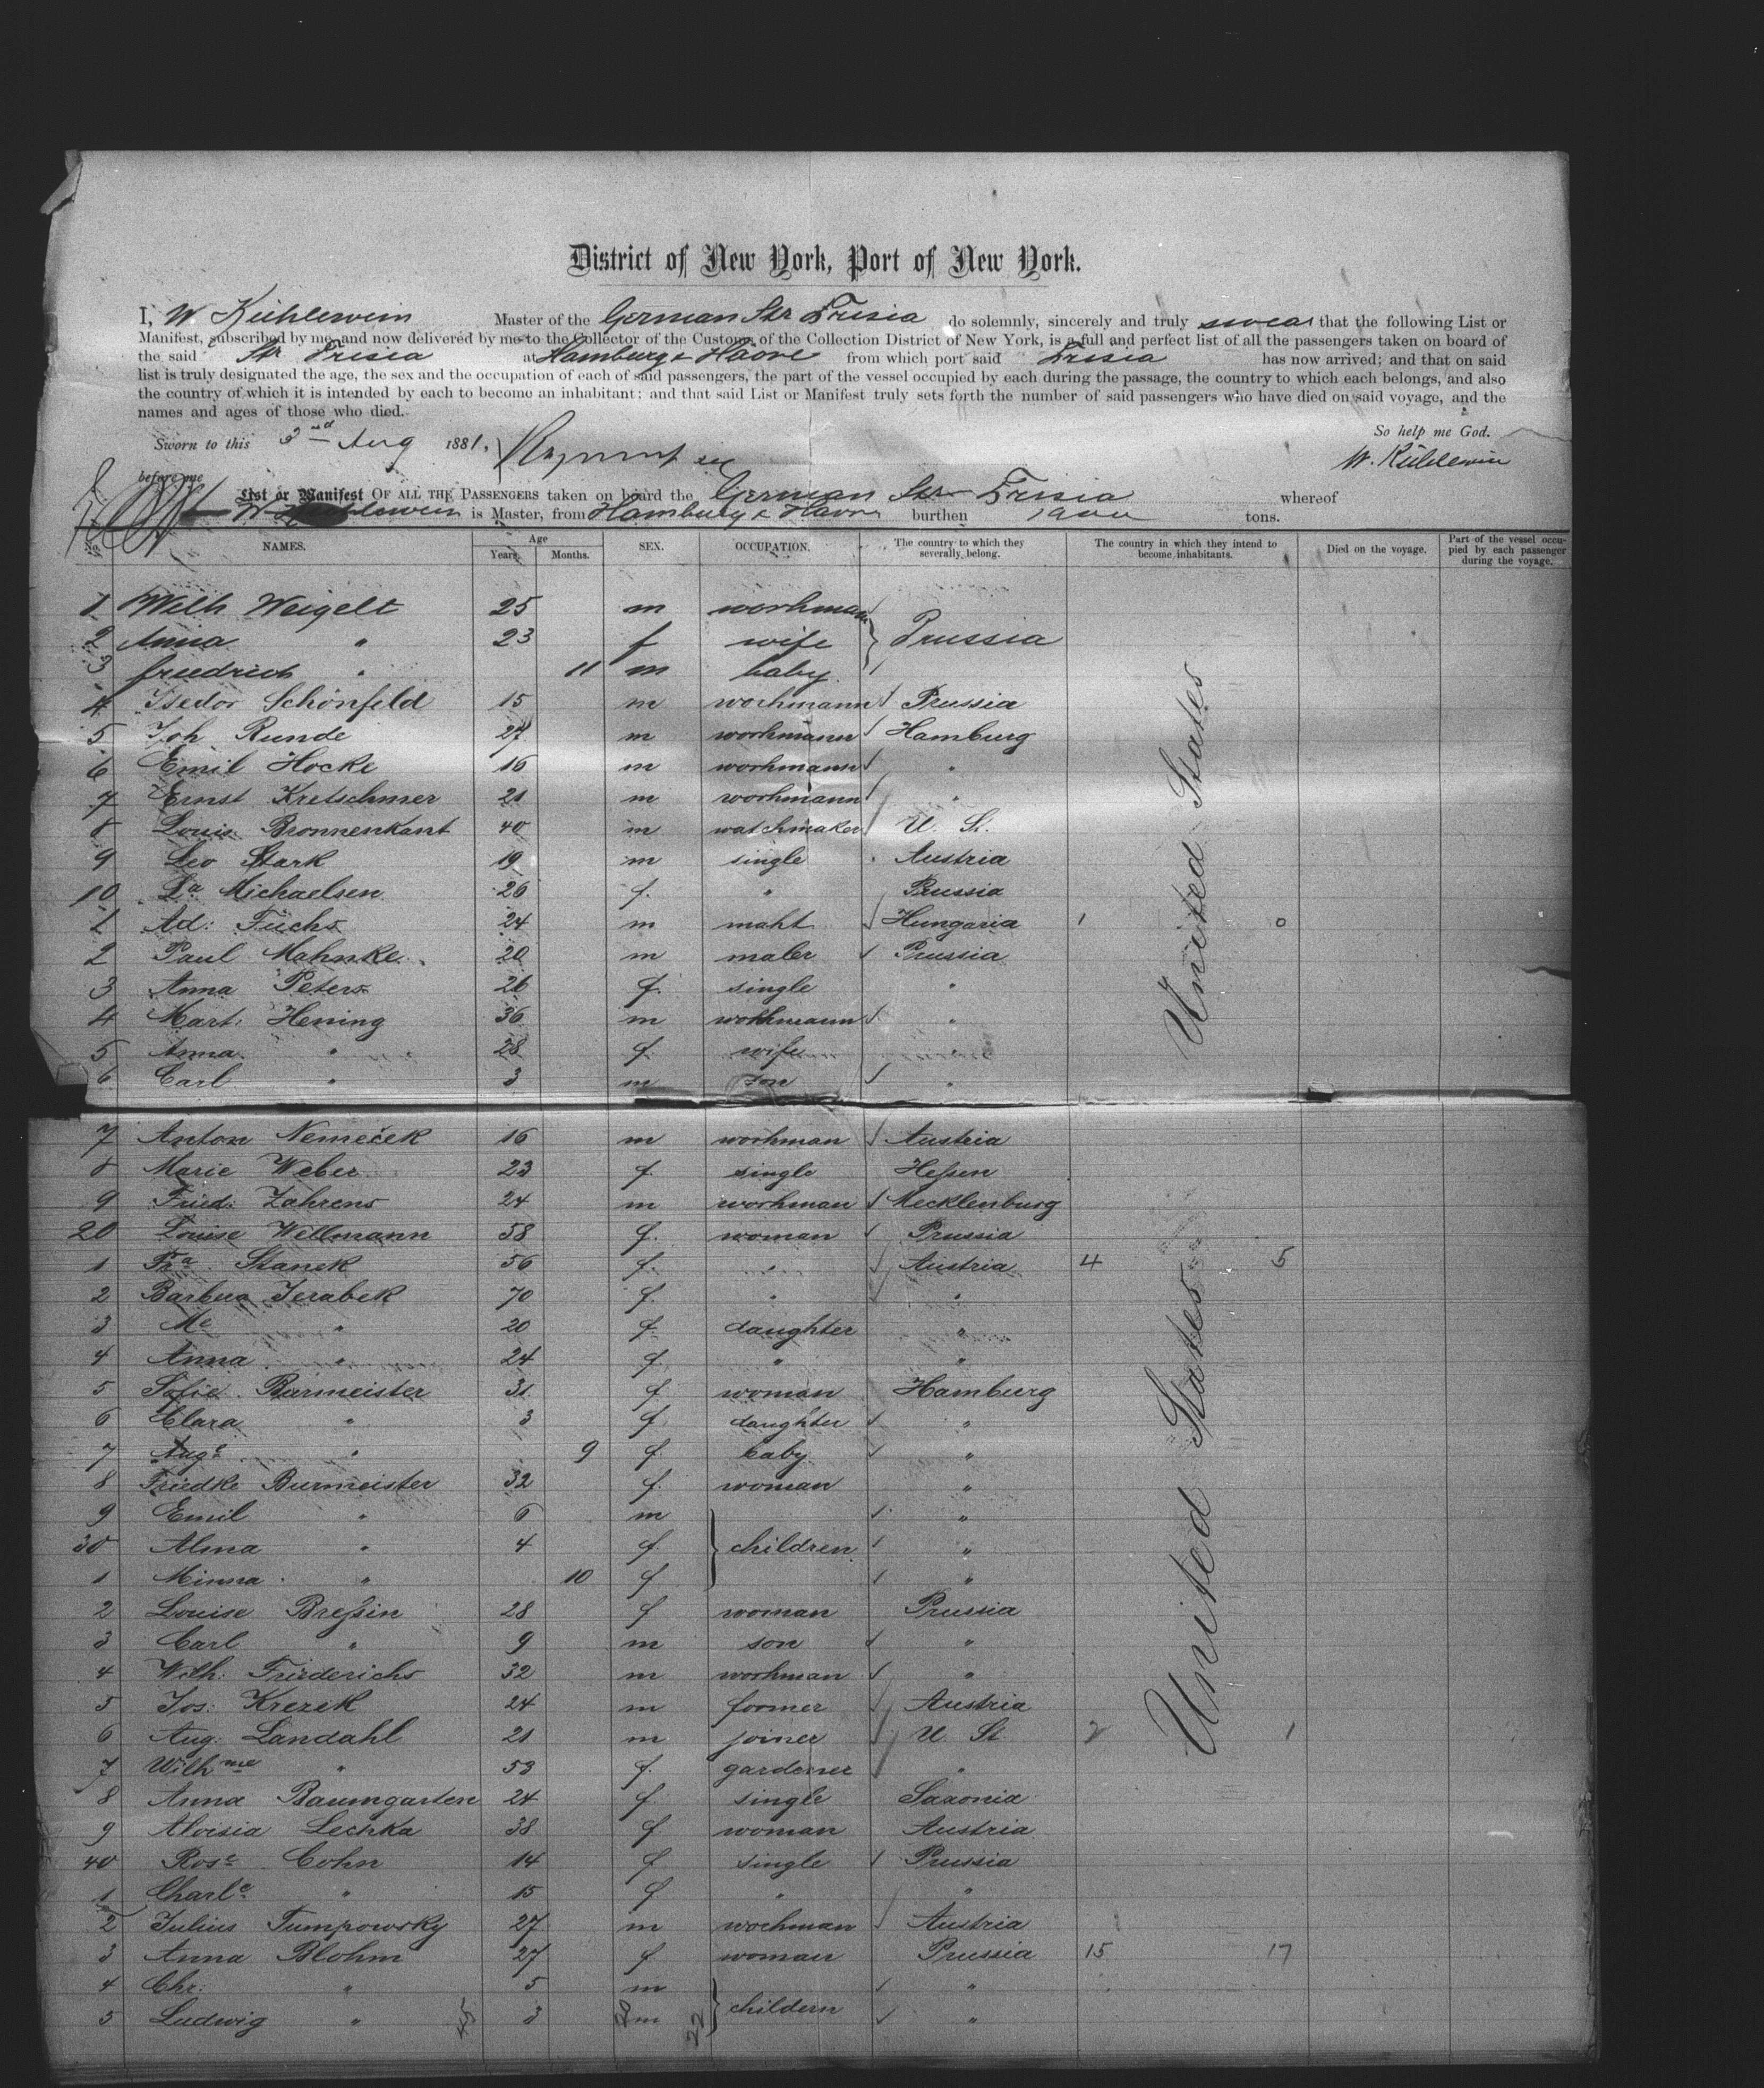 District of New York, Port of New York.
I, W Kühlewein Master of the German Str Frisia do solemnly, sincerely and truly swear that the following List or
Manifest, subscribed by me, and now delivered by me to the Collector of the Customs of the Collection District of New York, is a full and perfect list of all the passengers taken on board of
the said Str Frisia at Hamburg & Havre from which port said Frisia has now arrived; and that on said
list is truly designated the age, the sex and the occupation of each of said passengers, the part of the vessel occupied by each during the passage, the country to which each belongs, and also
the country of which it is intended by each to become an inhabitant; and that said List or Manifest truly sets forth the number of said passengers who have died on said voyage, and the
names and ages of those who died.
So help me God.
Sworn to this 3rd Aug 1881,
W. Kühlewein
before me
List or Manifest OF ALL THE PASSENGERS taken on board the German Str Frisia whereof
W Kühlewein is Master, from Hamburg & Havre burthen tons.
No. NAMES. Age Years. Months. SEX. OCCUPATION. The country to which they severally belong. The country in which they intend to become inhabitants. Died on the voyage. Part of the vessel occupied by each passenger during the voyage.
1 Wilh Weigelt 25 m workman
2 Anna " 23 f wife } Prussia
3 friedrich " 11 m baby
4 Isedor Schönfeld 15 m workmann Prussia
5 Joh Runde 27 m workmann Hamburg
6 Emil Hocke 16 m workmann "
7 Ernst Kretschmer 21 m workmann "
8 Louis Bronnenkant 40 m watchmaker U. St.
9 Leo Stark 19 m single Austria
10 Michaelsen 26 f. " Prussia
1 Ad: Fuchs 24 m maht Hungaria 1 0
2 Paul Mahnke 20 m maler Prussia
3 Anna Peters 26 f. single "
4 Mart: Hening 36 m workmann "
5 Anna " 28 f. wife "
6 Carl " 3 m son "
United States
7 Anton Nemecek 16 m workman Austria
8 Marie Weber 23 f. single Hessen
9 Fried: Zahrens 24 m workman Mecklenburg
20 Louise Wellmann 58 f. woman Prussia
1 Fra Stanek 56 f. " Austria 4 5
2 Barbua Jerabek 70 f. " "
3 Me " 20 f. daughter "
4 Anna " 24 f. " "
5 Sofie Burmeister 31 f. woman Hamburg
6 Clara " 3 f. daughter "
7 Auge " 9 f. baby "
8 Friedke Burmeister 32 f. woman "
9 Emil " 6 m "
30 Alma " 4 f } children "
1 Minna " 10 f "
2 Louise Bressin 28 f woman Prussia
3 Carl " 9 m son "
4 Wilh: Friederichs 32 m workman "
5 Jos: Krezek 24 m former Austria
6 Aug: Landahl 21 m joiner U St 2 1
7 Wilhme " 53 f. gardener "
8 Anna Baumgarten 24 f single Saxonia
9 Aloisia Lechka 38 f woman Austria
40 Rose Cohn 14 f single Prussia
1 Charle " 15 f " "
2 Julius Tumpowsky 27 m workman Austria
3 Anna Blohm 27 f woman Prussia 15 17
4 Chr: " 5 m "
5 Ludwig " 3 m } childern "
United States
45 22